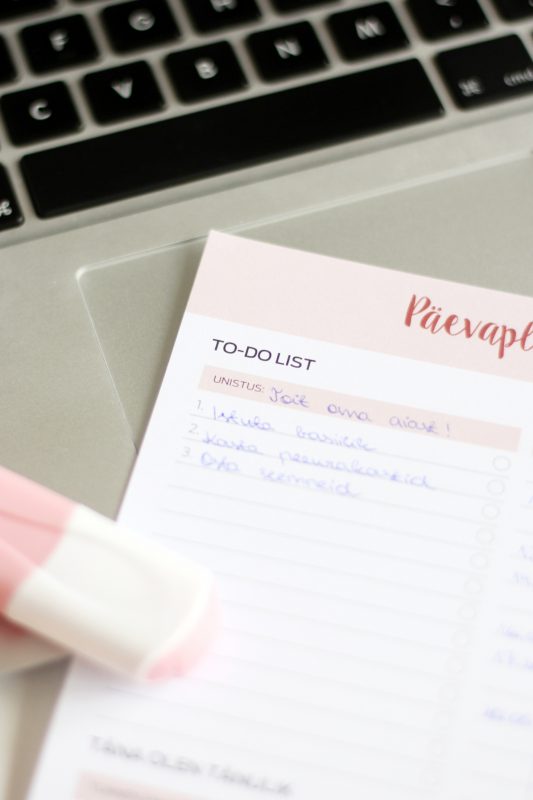 F G
C V B N M
⌘ cmd
Päevapl
TO-DO LIST
UNISTUS: Toit oma aiast!
1. Istuta basiilik
2. Kasta peenrakastid
3. Osta seemneid
TÄNA OLEN TÄNULIK